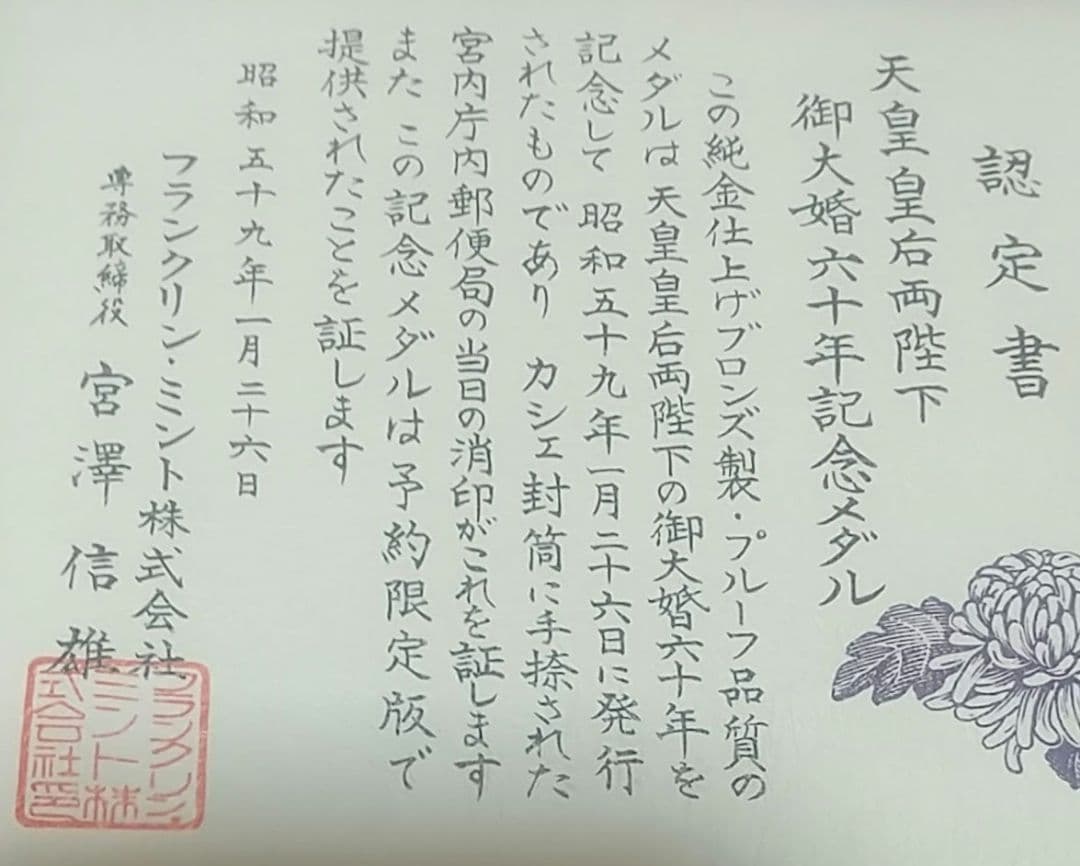 認定書
天皇皇后両陛下
御大婚六十年記念メダル
この純金仕上げブロンズ製・プルーフ品質の
メダルは 天皇皇后両陛下の御大婚六十年を
記念して 昭和五十九年一月二十六日に発行
されたものであり カシェ封筒に手捺された
宮内庁内郵便局の当日の消印がこれを証します
また この記念メダルは予約限定版で
提供されたことを証します
昭和五十九年一月二十六日
フランクリン・ミント株式会社
専務取締役 宮澤信雄
フランクリン・
ミント株
式会社印